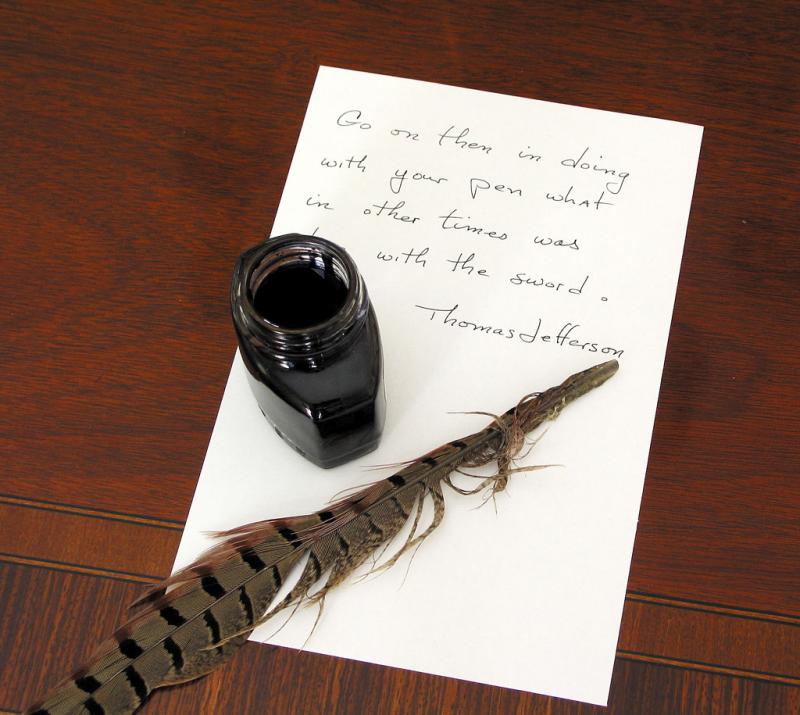 Go on then in doing
with your pen what
in other times was
with the sword.
Thomas Jefferson